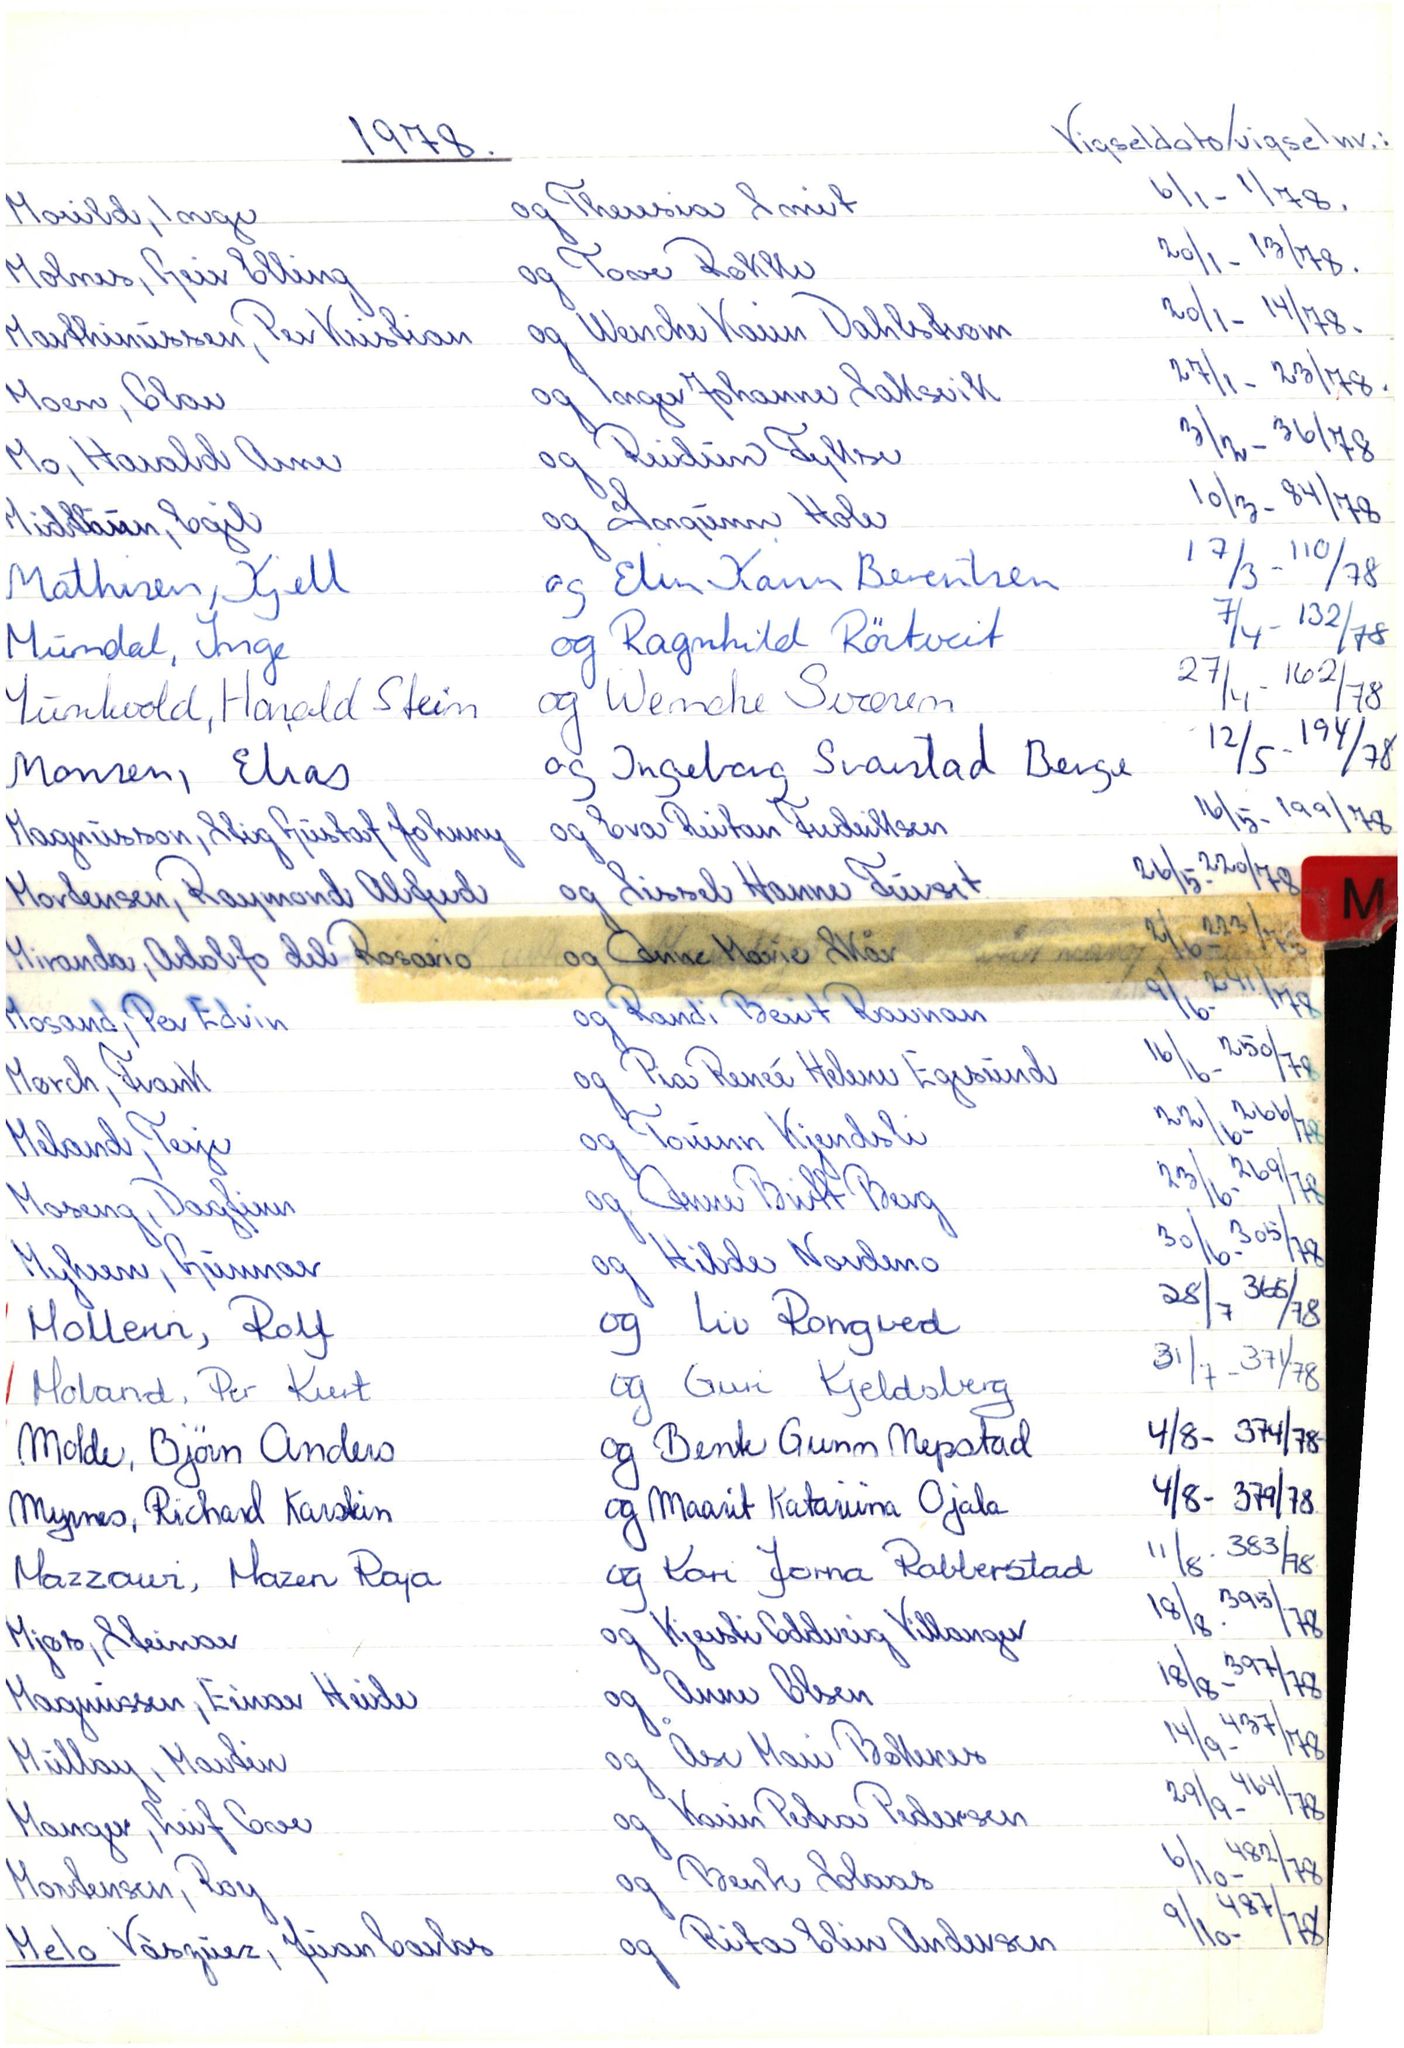 1978.
Vigseldato/vigselnr.:
Morild, Inge og Theresia Smit 6/1 - 1/78.
Molnes, Geir Elling og Tove Rokke 20/1 - 13/78.
Marthinussen, Per Kristian og Wenche Karin Dahlstrøm 20/1 - 14/78.
Moen, Olav og Inger Johanne Laksvik 27/1 - 23/78.
Mo, Harald Arne og Reidun Fykse 3/2 - 36/78
Midttun, Egil og Ingunn Hole 10/3 - 84/78
Mathisen, Kjell og Elin Karin Berentsen 17/3 - 110/78
Mundal, Inge og Ragnhild Rörtveit 7/4 - 132/78
Harald Stein og Wenche 27/4 - 162/78
Monsen, Elias og Ingeborg Svarstad Berge 12/5 - 194/78
Magnusson, Stig Gustaf Johnny og Eva Reitan Fredriksen 16/5 - 199/78
Mortensen, Raymond Alfred og Sissel Hanne 26/5 - 220/78
M
Miranda, Adolfo del Rosario og Anne Marie Skår 2/6 - 223/78
Mosand, Per Edvin og Randi Berit Raunan 9/6 - 241/78
Mørch, Frank og Pia Reneé Helene Egesund 16/6 - 250/78
Meland, Terje og Torunn Kjendsli 22/6 - 266/78
Moseng, Dagfinn og Anne Britt Berg 23/6 - 269/78
Myhren, Gunnar og Hilde Nordmo 30/6 - 305/78
Mollerin, Rolf og Liv Rongved 28/7 365/78
Moland, Per Kurt og Guri Kjeldsberg 31/7 - 371/78
Molde, Björn Anders og Bente Gunn Nepstad 4/8 - 374/78
Myrnes, Richard Karstein og Maarit Katariina Ojala 4/8 - 379/78
Mazzawi, Mazen Raja og Kari Jorna Rabberstad 11/8 - 383/78
Mjøs, Steinar og Kjersti Eldbjørg Villanger 18/8 - 395/78
Magnussen, Einar Heide og Anne Olsen 18/8 - 397/78
Mullay, Martin og Åse Mari Bokenes 14/9 - 437/78
Manger, Leif Ove og Karin Petra Pedersen 29/9 - 464/78
Mortensen, Roy og Bente Solaas 6/10 - 482/78
Melo Vásquez, Juan Carlos og Rita Elin Andersen 9/10 - 487/78